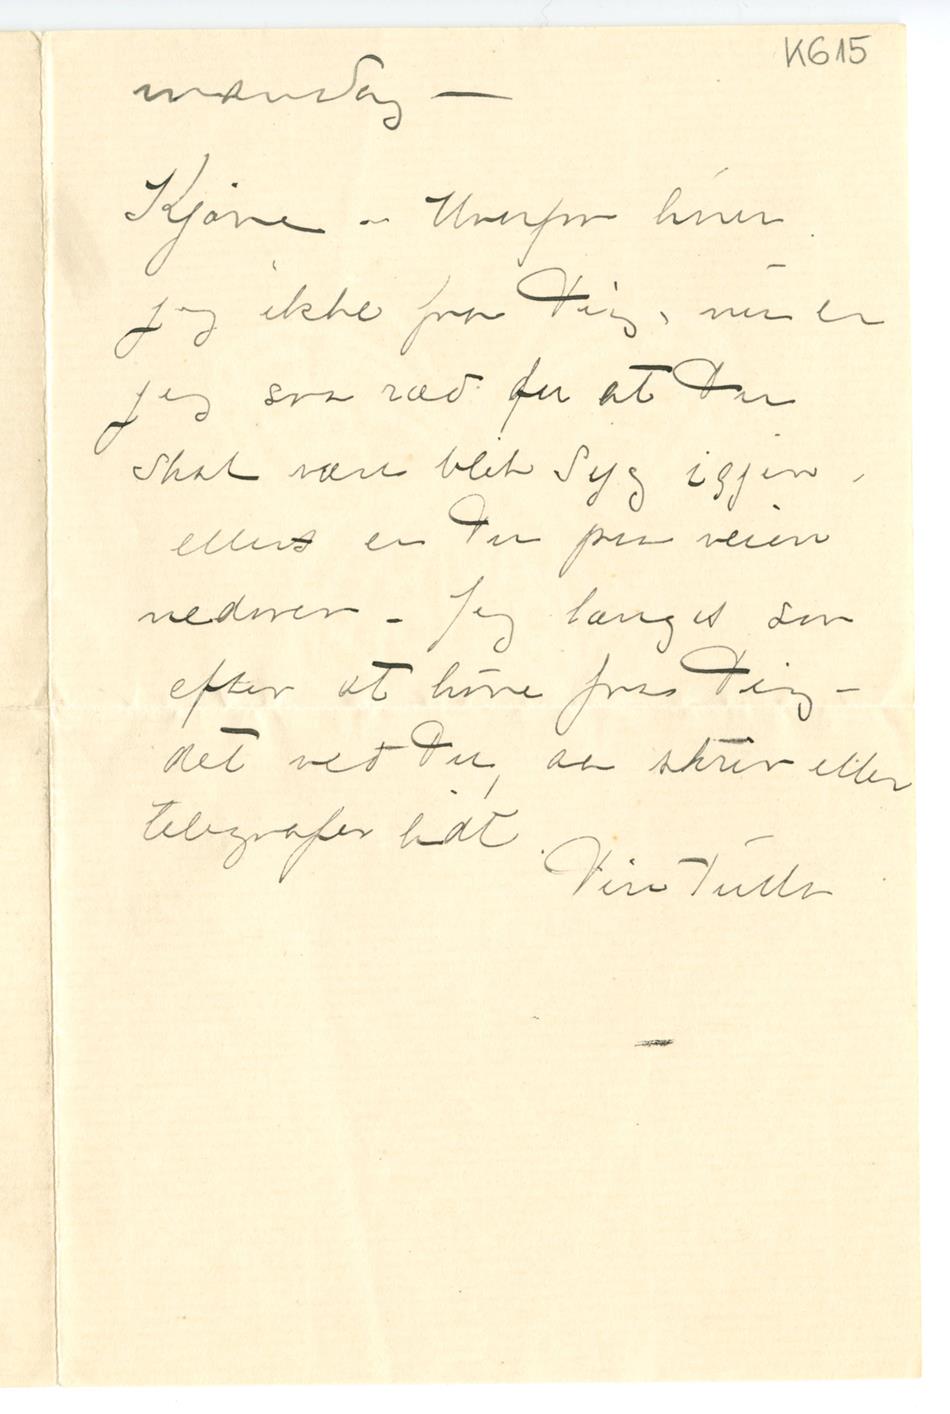 K615
mandag —
Kjære - Hvorfor hører
jeg ikke fra Dig, nu er
jeg saa ræd for at Du
skal være blit syg igjen,
ellers er Du paa veien
nedover - Jeg længes saa
efter at høre fra Dig -
det ved Du, aa skriv eller
telegrafer lidt.
Din Tulla